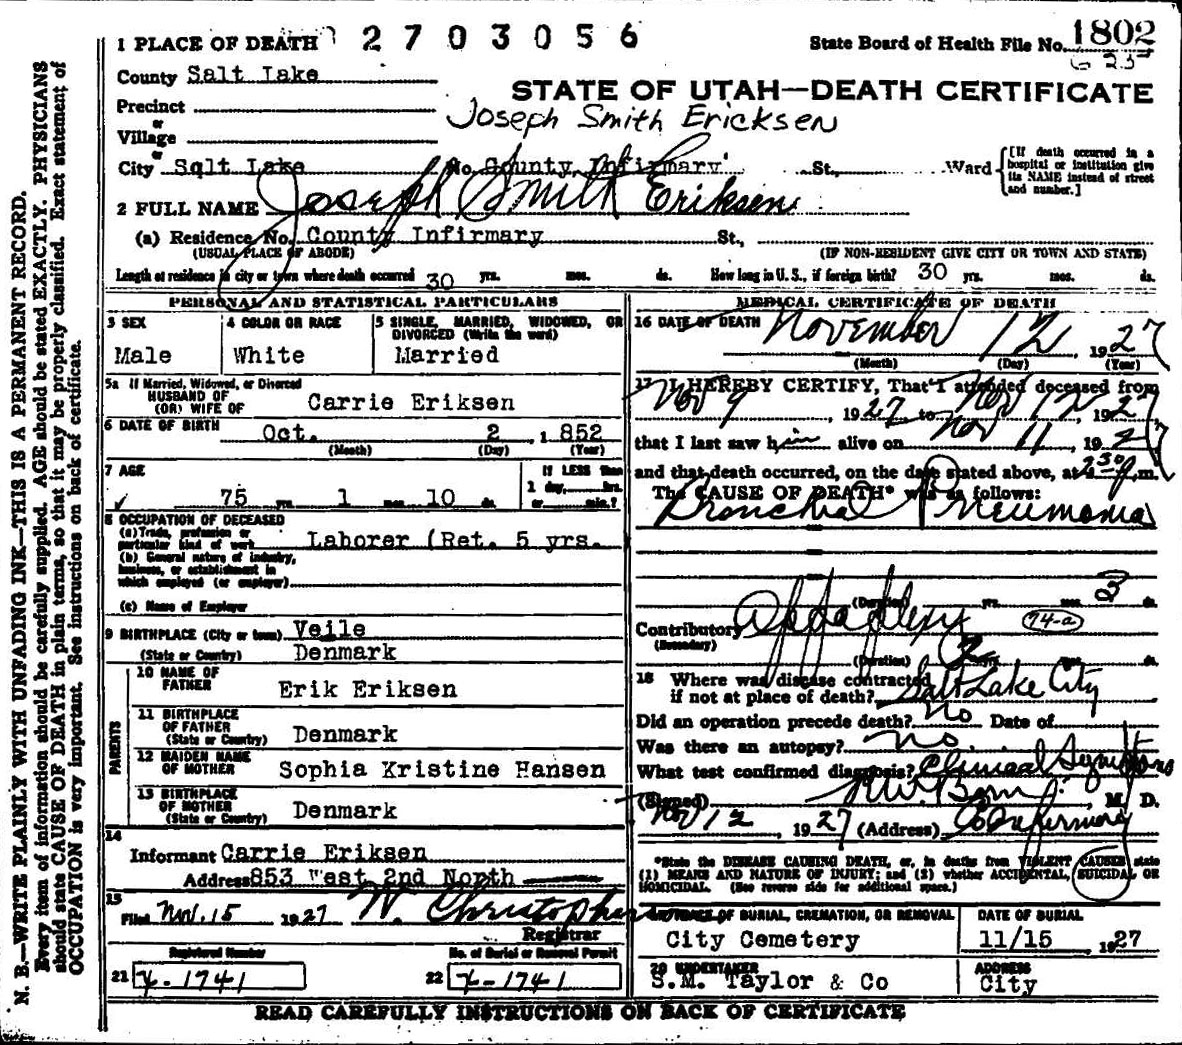 1 PLACE OF DEATH
2703056
State Board of Health File No. 1802
County Salt Lake
STATE OF UTAH—DEATH CERTIFICATE
Precinct
Joseph Smith Ericksen
or
Village
or
City Salt Lake No. County Infirmary St., Ward
[If death occurred in a hospital or institution give its NAME instead of street and number.]
2 FULL NAME Joseph Smith Eriksen
(a) Residence No. County Infirmary St.,
(USUAL PLACE OF ABODE) (IF NON-RESIDENT GIVE CITY OR TOWN AND STATE)
Length of residence in city or town where death occurred 30 yrs. mos. ds. How long in U. S., if foreign birth? 30 yrs. mos. ds.
PERSONAL AND STATISTICAL PARTICULARS
3 SEX
Male
4 COLOR OR RACE
White
5 SINGLE, MARRIED, WIDOWED, OR
DIVORCED (Write the word)
Married
5a If Married, Widowed, or Divorced
HUSBAND OF
(OR) WIFE OF Carrie Eriksen
6 DATE OF BIRTH Oct. 2, 1852
(Month) (Day) (Year)
7 AGE
75 yrs. 1 mos. 10 ds.
If LESS than
1 day, hrs.
or min.?
8 OCCUPATION OF DECEASED
(a) Trade, profession or
particular kind of work Laborer (Ret. 5 yrs.
(b) General nature of industry,
business, or establishment in
which employed (or employer)
(c) Name of Employer
9 BIRTHPLACE (City or town) Vejle
(State or Country) Denmark
PARENTS
10 NAME OF
FATHER Erik Eriksen
11 BIRTHPLACE
OF FATHER
(State or Country) Denmark
12 MAIDEN NAME
OF MOTHER Sophia Kristine Hansen
13 BIRTHPLACE
OF MOTHER
(State or Country) Denmark
14
Informant Carrie Eriksen
Address 853 West 2nd North
15
Filed Nov. 15 1927
Registrar
Registered Number No. of Burial or Removal Permit
21 22
MEDICAL CERTIFICATE OF DEATH
16 DATE OF DEATH November 12, 1927
(Month) (Day) (Year)
17 I HEREBY CERTIFY, That I attended deceased from
Nov 9, 1927 to Nov 12, 1927
that I last saw him alive on Nov 11, 1927
and that death occurred, on the date stated above, at 2 30 p.m.
The CAUSE OF DEATH* was as follows:
Bronchial Pneumonia
(Duration) yrs. mos. 3 ds.
Contributory Apoplexy 74-a
(Secondary)
(Duration) 2 yrs. mos. ds.
18 Where was disease contracted
if not at place of death? Salt Lake City
Did an operation precede death? No Date of
Was there an autopsy? No.
What test confirmed diagnosis? Clinical Symptoms
(Signed) M. D.
Nov 12, 1927 (Address) Co Infirmary
*State the DISEASE CAUSING DEATH, or, in deaths from VIOLENT CAUSES state
(1) MEANS AND NATURE OF INJURY; and (2) whether ACCIDENTAL, SUICIDAL OR
HOMICIDAL. (See reverse side for additional space.)
OF BURIAL, CREMATION, OR REMOVAL
City Cemetery
DATE OF BURIAL
11/15 1927
20 UNDERTAKER
S.M. Taylor & Co
ADDRESS
City
READ CAREFULLY INSTRUCTIONS ON BACK OF CERTIFICATE
N. B.—WRITE PLAINLY WITH UNFADING INK—THIS IS A PERMANENT RECORD.
Every item of information should be carefully supplied. AGE should be stated EXACTLY. PHYSICIANS
should state CAUSE OF DEATH in plain terms, so that it may be properly classified. Exact statement of
OCCUPATION is very important. See instructions on back of certificate.